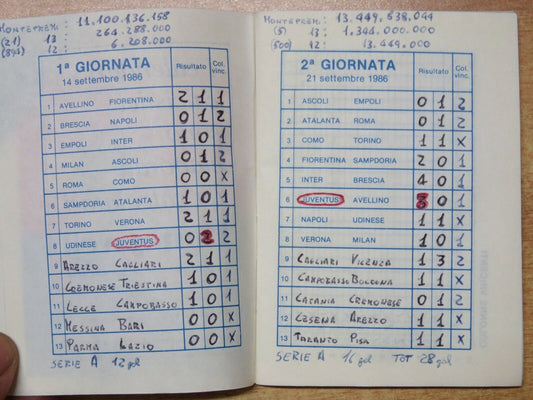 MONTEPREMI: 11.100.136.158
(21) 13 : 264.288.000
12 : 6.208.000
1ª GIORNATA
14 settembre 1986
Risultato
Col. vinc.
1 AVELLINO FIORENTINA 2 1 1
2 BRESCIA NAPOLI 0 1 2
3 EMPOLI INTER 1 0 1
4 MILAN ASCOLI 0 1 2
5 ROMA COMO 0 0 X
6 SAMPDORIA ATALANTA 1 0 1
7 TORINO VERONA 2 1 1
8 UDINESE JUVENTUS 0 2 2
9 AREZZO CAGLIARI 2 1 1
10 CREMONESE TRIESTINA 1 0 1
11 LECCE CAMPOBASSO 1 0 1
12 MESSINA BARI 0 0 X
13 PARMA LAZIO 0 0 X
SERIE A 12 gol
MONTEPREMI: 13.449.638.044
(5) 13 : 1.344.000.000
(500) 12 : 13.449.000
2ª GIORNATA
21 settembre 1986
Risultato
Col. vinc.
1 ASCOLI EMPOLI 0 1 2
2 ATALANTA ROMA 0 1 2
3 COMO TORINO 1 1 X
4 FIORENTINA SAMPDORIA 2 0 1
5 INTER BRESCIA 4 0 1
6 JUVENTUS AVELLINO 3 0 1
7 NAPOLI UDINESE 1 1 X
8 VERONA MILAN 1 0 1
9 CAGLIARI VICENZA 1 3 2
10 CAMPOBASSO BOLOGNA 1 1 X
11 CATANIA CREMONESE 0 1 2
12 CESENA AREZZO 1 1 X
13 TARANTO PISA 1 1 X
SERIE A 16 gol TOT 28 gol